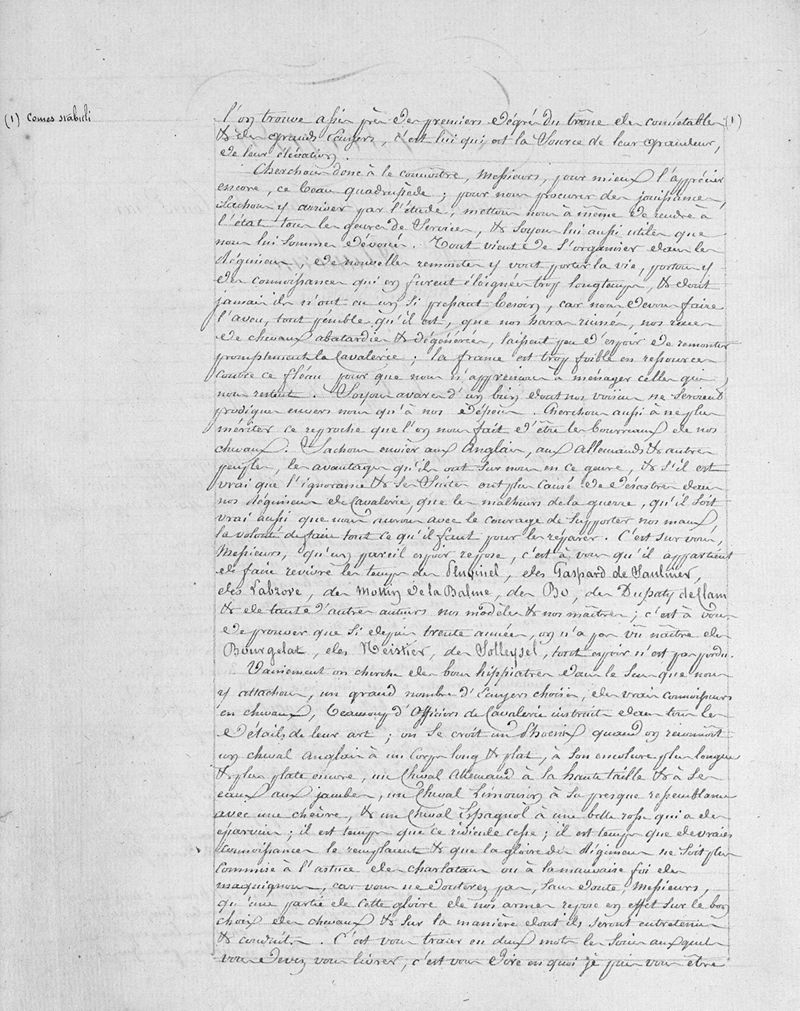 (1) Comes stabuli
l'on trouve assis près des premiers dégrés du trône des connétables (1)
& des grands Ecuyers, c'est lui qui est la Source de leur grandeur,
de leur élévation.
Cherchons donc à le connoître, Messieurs, pour mieux l'apprécier
encore, ce beau quadrupede ; pour nous procurer des jouissances,
Sachons y arriver par l'étude ; mettons nous à même de rendre à
l'état tous les genres de Services, & Soyons lui aussi utiles que
nous lui Sommes dévoués. Tout vient de S'organiser dans les
Régimens, de nouvelles remontes y vont porter la vie, portons y
des connoissances qui en furent éloignées trop longtemps, & dont
jamais ils n'ont eu un Si pressant besoin, car nous devons faire
l'aveu, tout pénible qu'il est, que nos haras ruinés, nos races
de chevaux abatardies & dégénérées, laissent peu d'espoir de remonter
promptement la Cavalerie ; la france est trop foible en ressources
contre ce fléau pour que nous n'apprenions à ménager celles qui
nous restent. Soyons avares d'un bien dont nos voisins ne Seroient
prodigues envers nous qu'à nos dépens. Cherchons aussi à ne plus
mériter ce reproche que l'on nous fait d'être les bourreaux de nos
chevaux. Sachons envier aux Anglais, aux Allemands & autres
peuples, les avantages qu'ils ont Sur nous en ce genre, & S'il est
vrai que l'ignorance & Ses Suites ont plus causé de désastres dans
nos Régimens de Cavalerie, que les malheurs de la guerre, qu'il Soit
vrai aussi que nous aurons avec le courage de Supporter nos maux,
la volonté de faire tout ce qu'il faut pour les réparer. C'est Sur vous,
Messieurs, qu'un pareil espoir repose, c'est à vous qu'il appartient
de faire revivre les temps des Pluvinel, des Gaspard de Saulnier,
des Labrove, des Mottin de la Balme, des Bo, des Dupaty de Clam
& de tant d'autres auteurs nos modèles & nos maîtres ; c'est à vous
de prouver que Si depuis trente années, on n'a pas vu naître des
Bourgelat, des Neistier, des Solleysel, tout espoir n'est pas perdu.
Vainement on cherche des bons hippiatres dans le Sens que nous
y attachons, un grand nombre d'Ecuyers choisis, de vrais connoisseurs
en chevaux, beaucoup d'Officiers de Cavalerie instruits dans tous les
détails de leur art ; on Se croit un Phoenix quand on reconnoît
un cheval Anglais à un corps long & plat, à Son encolure plus longue
& plus plate encore, un Cheval Allemand à Sa haute taille & à Ses
eaux aux jambes, un Cheval Limousin à Sa presque ressemblance
avec une chèvre, & un Cheval Espagnol à une belle robe qui a des
éparvins ; il est temps que ce ridicule cesse ; il est temps que de vraies
connoissances le remplacent & que la gloire des Régimens ne Soit plus
commise à l'astuce des charlatans ou à la mauvaise foi des
maquignons, car vous ne doutez pas, Sans doute, Messieurs,
qu'une partie de cette gloire de nos armes repose en effet Sur le bon
choix des chevaux & Sur la manière dont ils Seront entretenus
& conduits. C'est vous tracer en deux mots les Soins auxquels
vous devez vous livrer, c'est vous dire en quoi je puis vous être